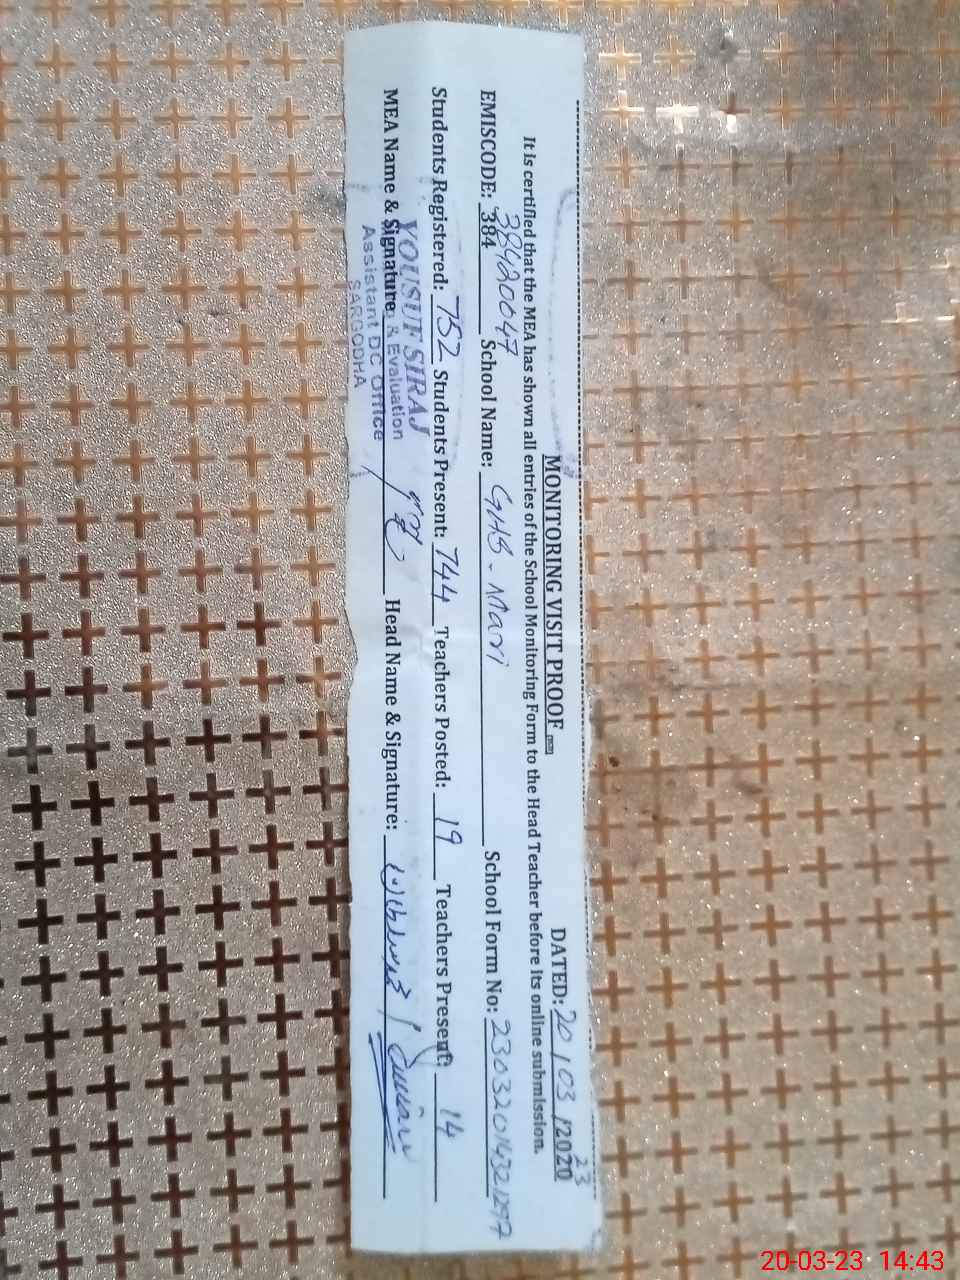 MONITORING VISIT PROOF
DATED: 20/03/2020 23
It is certified that the MEA has shown all entries of the School Monitoring Form to the Head Teacher before its online submission.
EMISCODE: 384 38420047 School Name: GHS - Mari School Form No:
Students Registered: 752 Students Present: 744 Teachers Posted: 19 Teachers Present: 14
MEA Name & Signature: Head Name & Signature:
YOUSUF SIRAJ
& Evaluation
Assistant DC Office
SARGODHA
20-03-23 14:43